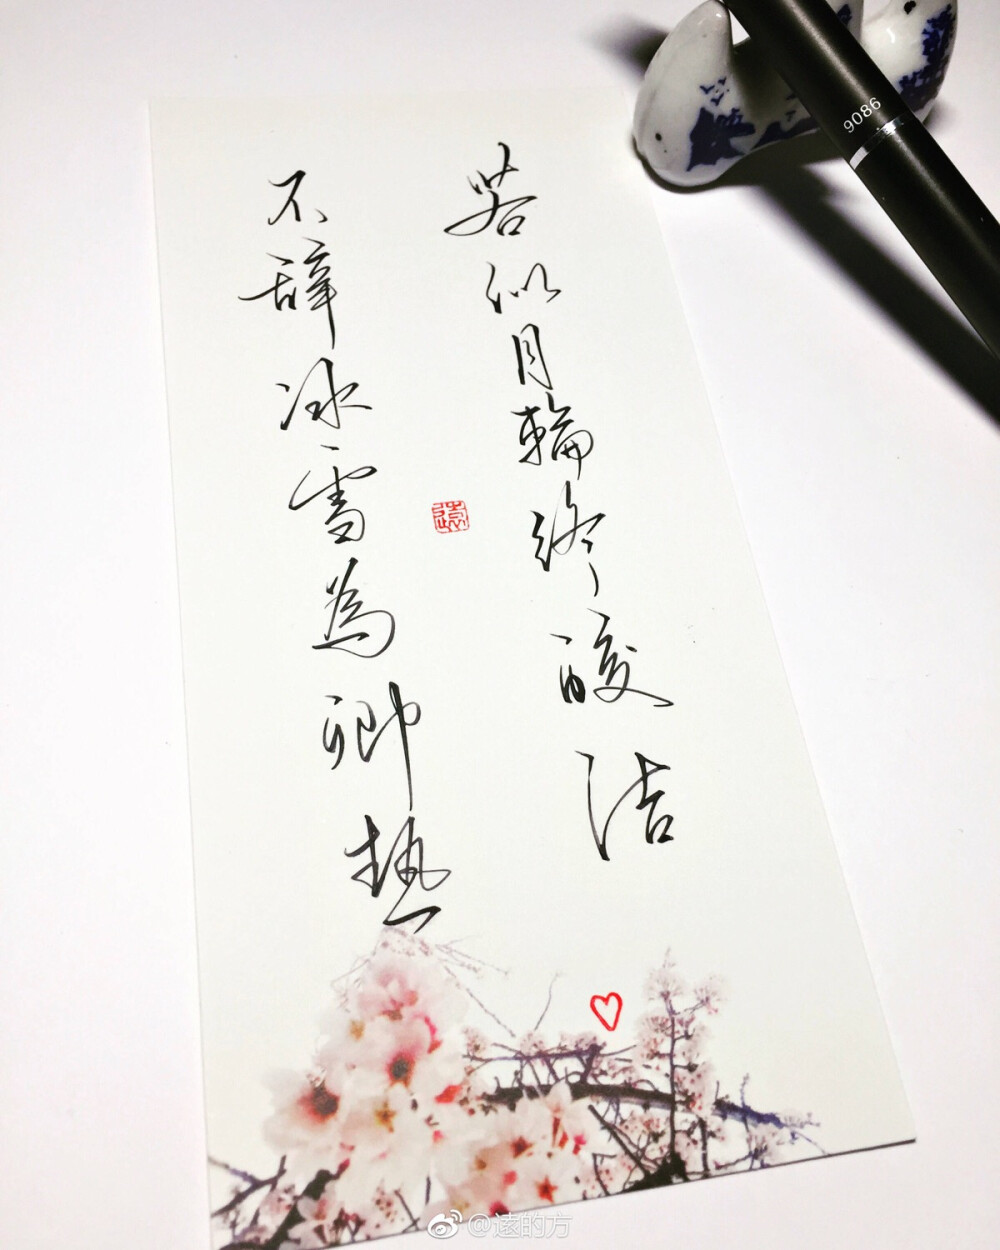 若似月輪终皎洁
不辞冰雪為卿热
遠
9086
@遠的方